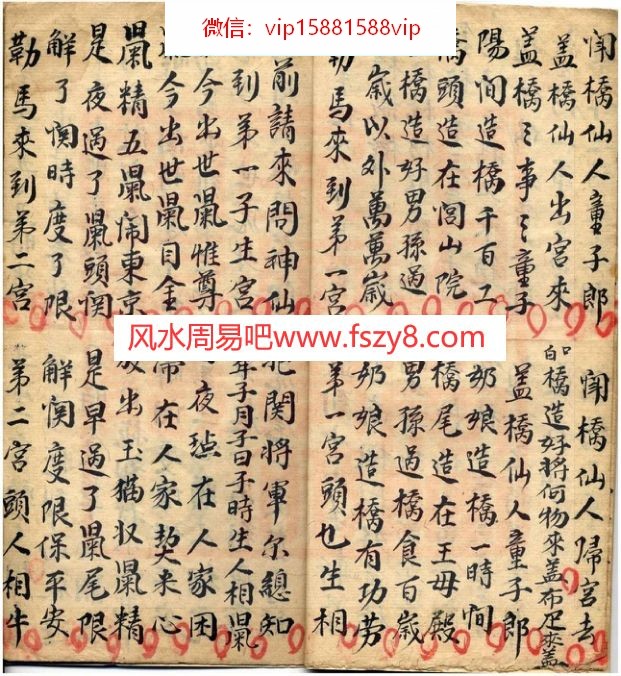 微信：vip15881588vip
橋仙人童子郎
橋仙人歸宫去
盖橋仙人出宫來
白橋造好將何物來盖布足來盖
盖橋〻事〻童子
盖橋仙人童子郎
陽间造橋千百工
奶娘造橋一時间
橋頭造在闾山院
橋尾造在王母殿
橋造好男孫過
男孫過橋食百歲
歲以外萬萬歲
奶娘造橋有功劳
勒馬來到第一宫
第一宫頭乜生相
前請來問神仙
関將軍尔總知
到第一子生宫
年子月子日子時生人相鼠
今出世鼠惟尊
夜在人家困
今出世鼠目金
在人家契来心
鼠精五鼠闹東京
放出玉猫収鼠精
是夜過了鼠頭関
是早過了鼠尾限
解了関時度了限
解関度限保平安
勒馬來到第二宫
第二宫頭人相牛
风水周易吧www.fszy8.com